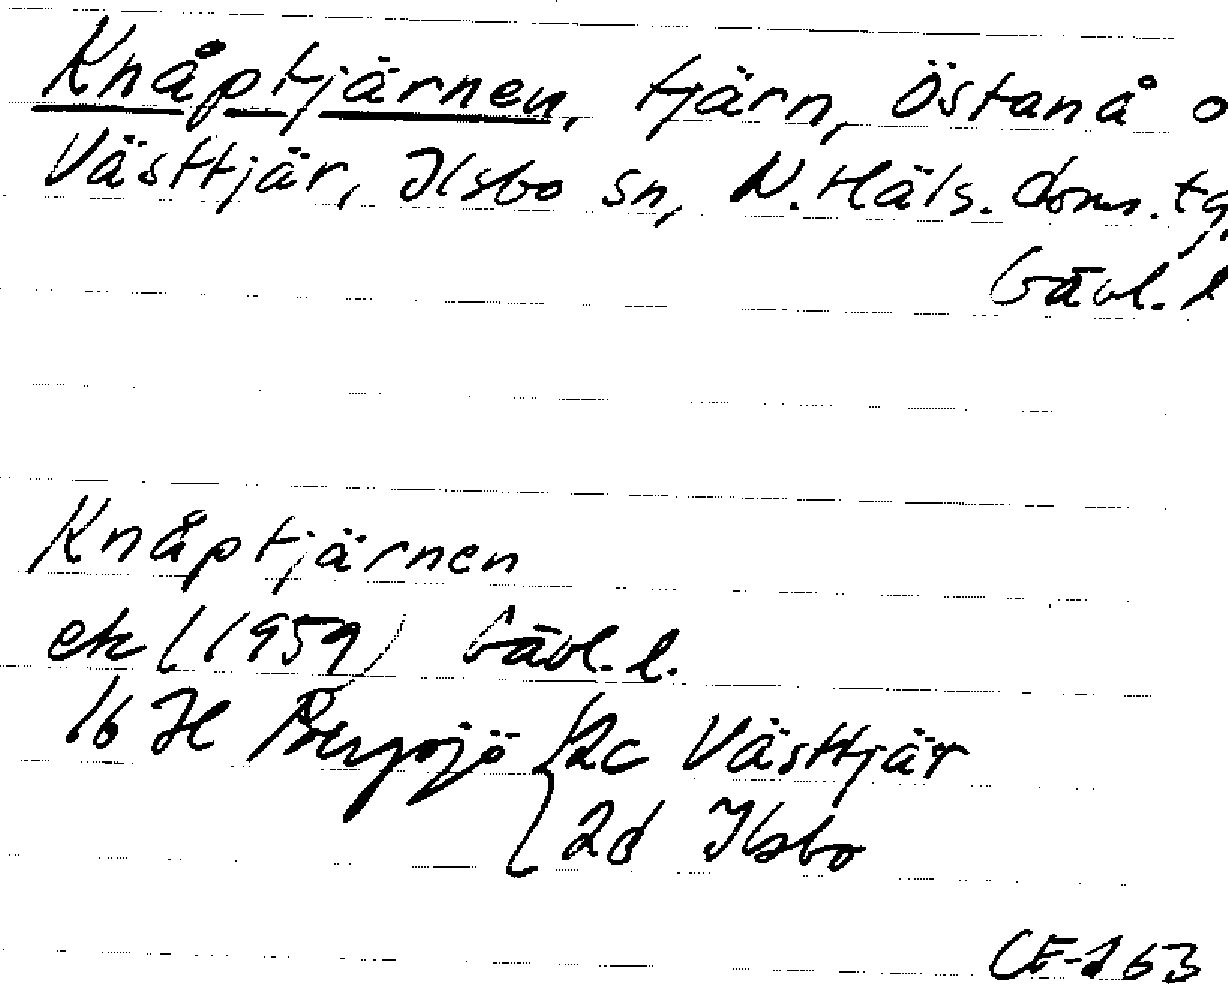 Knåptjärnen, tjärn, Östanå o
Västtjär, Ilsbo sn, N. Häls. doms. tg,
Gävl. l
Knåptjärnen
ek (1959) Gävl. l.
16 H Bergsjö 2c Västtjär
2d Ilsbo
CE-263